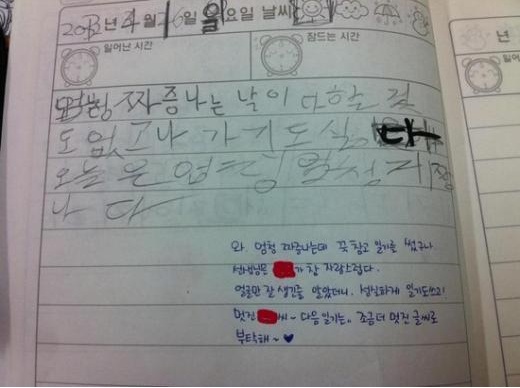 2012년 4월 16일 월요일 날씨
년
일어난 시간
잠드는 시간
일어
엄청 짜증나는 날이다 할 것
도 없고 나가기도 싫다
오늘은 엄청 엄청 짜증
나다
와. 엄청 짜증나는데 꾹 참고 일기를 썼구나.
선생님은 가 참 자랑스럽다.
얼굴만 잘 생긴줄 알았더니. 성실하게 일기도쓰고!
멋진 씨~ 다음 일기는.. 조금더 멋진 글씨로
부탁해~♥